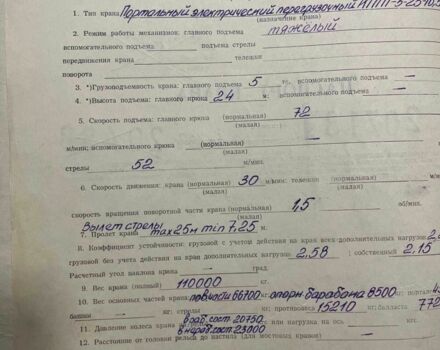 1. Тип крана Портальный электрический перегрузочный КППГ-5-25-10,5
(назначение крана)
2. Режим работы механизмов: главного подъема тяжёлый
вспомогательного подъема подъема стрелы
передвижения крана тележки
поворота
3. *)Грузоподъемность крана: главного подъема 5 тс, вспомогательного подъема —
4. *)Высота подъема: главного крюка 24 м: вспомогательного подъема —
5. Скорость подъема: главного крюка (нормальная) 72
(малая)
м/мин; вспомогательного крюка (нормальная) —
(малая)
стрелы 52 м/мин.
6. Скорость движения: крана (нормальная) 30 м/мин: тележки (нормальная) —
(малая) (малая)
скорость вращения поворотной части крана (нормальная) 1,5 об/мин.
(малая)
Вылет стрелы
7. Пролет крана max 25м min 7,25 м.
8. Коэффициент устойчивости: грузовой с учетом действия на кран всех дополнительных нагрузок
грузовой без учета действия на кран дополнительных нагрузок 2,58 ; собственный 2,15
Расчетный угол наклона крана — град.
9. Вес крана (полный) 110000 кг.
10. Вес основных частей крана: пов.части 66700 кг. опорн барабана 8500 кг; портал
башни — кг: стрелы кг; противовеса 15210 кг; балласта
в раб. сост 20750
11. Давление колеса крана в нераб. сост 23000 или нагрузка на ось кгс.
12. Расстояние от головки рельса до настила (для мостовых кранов)